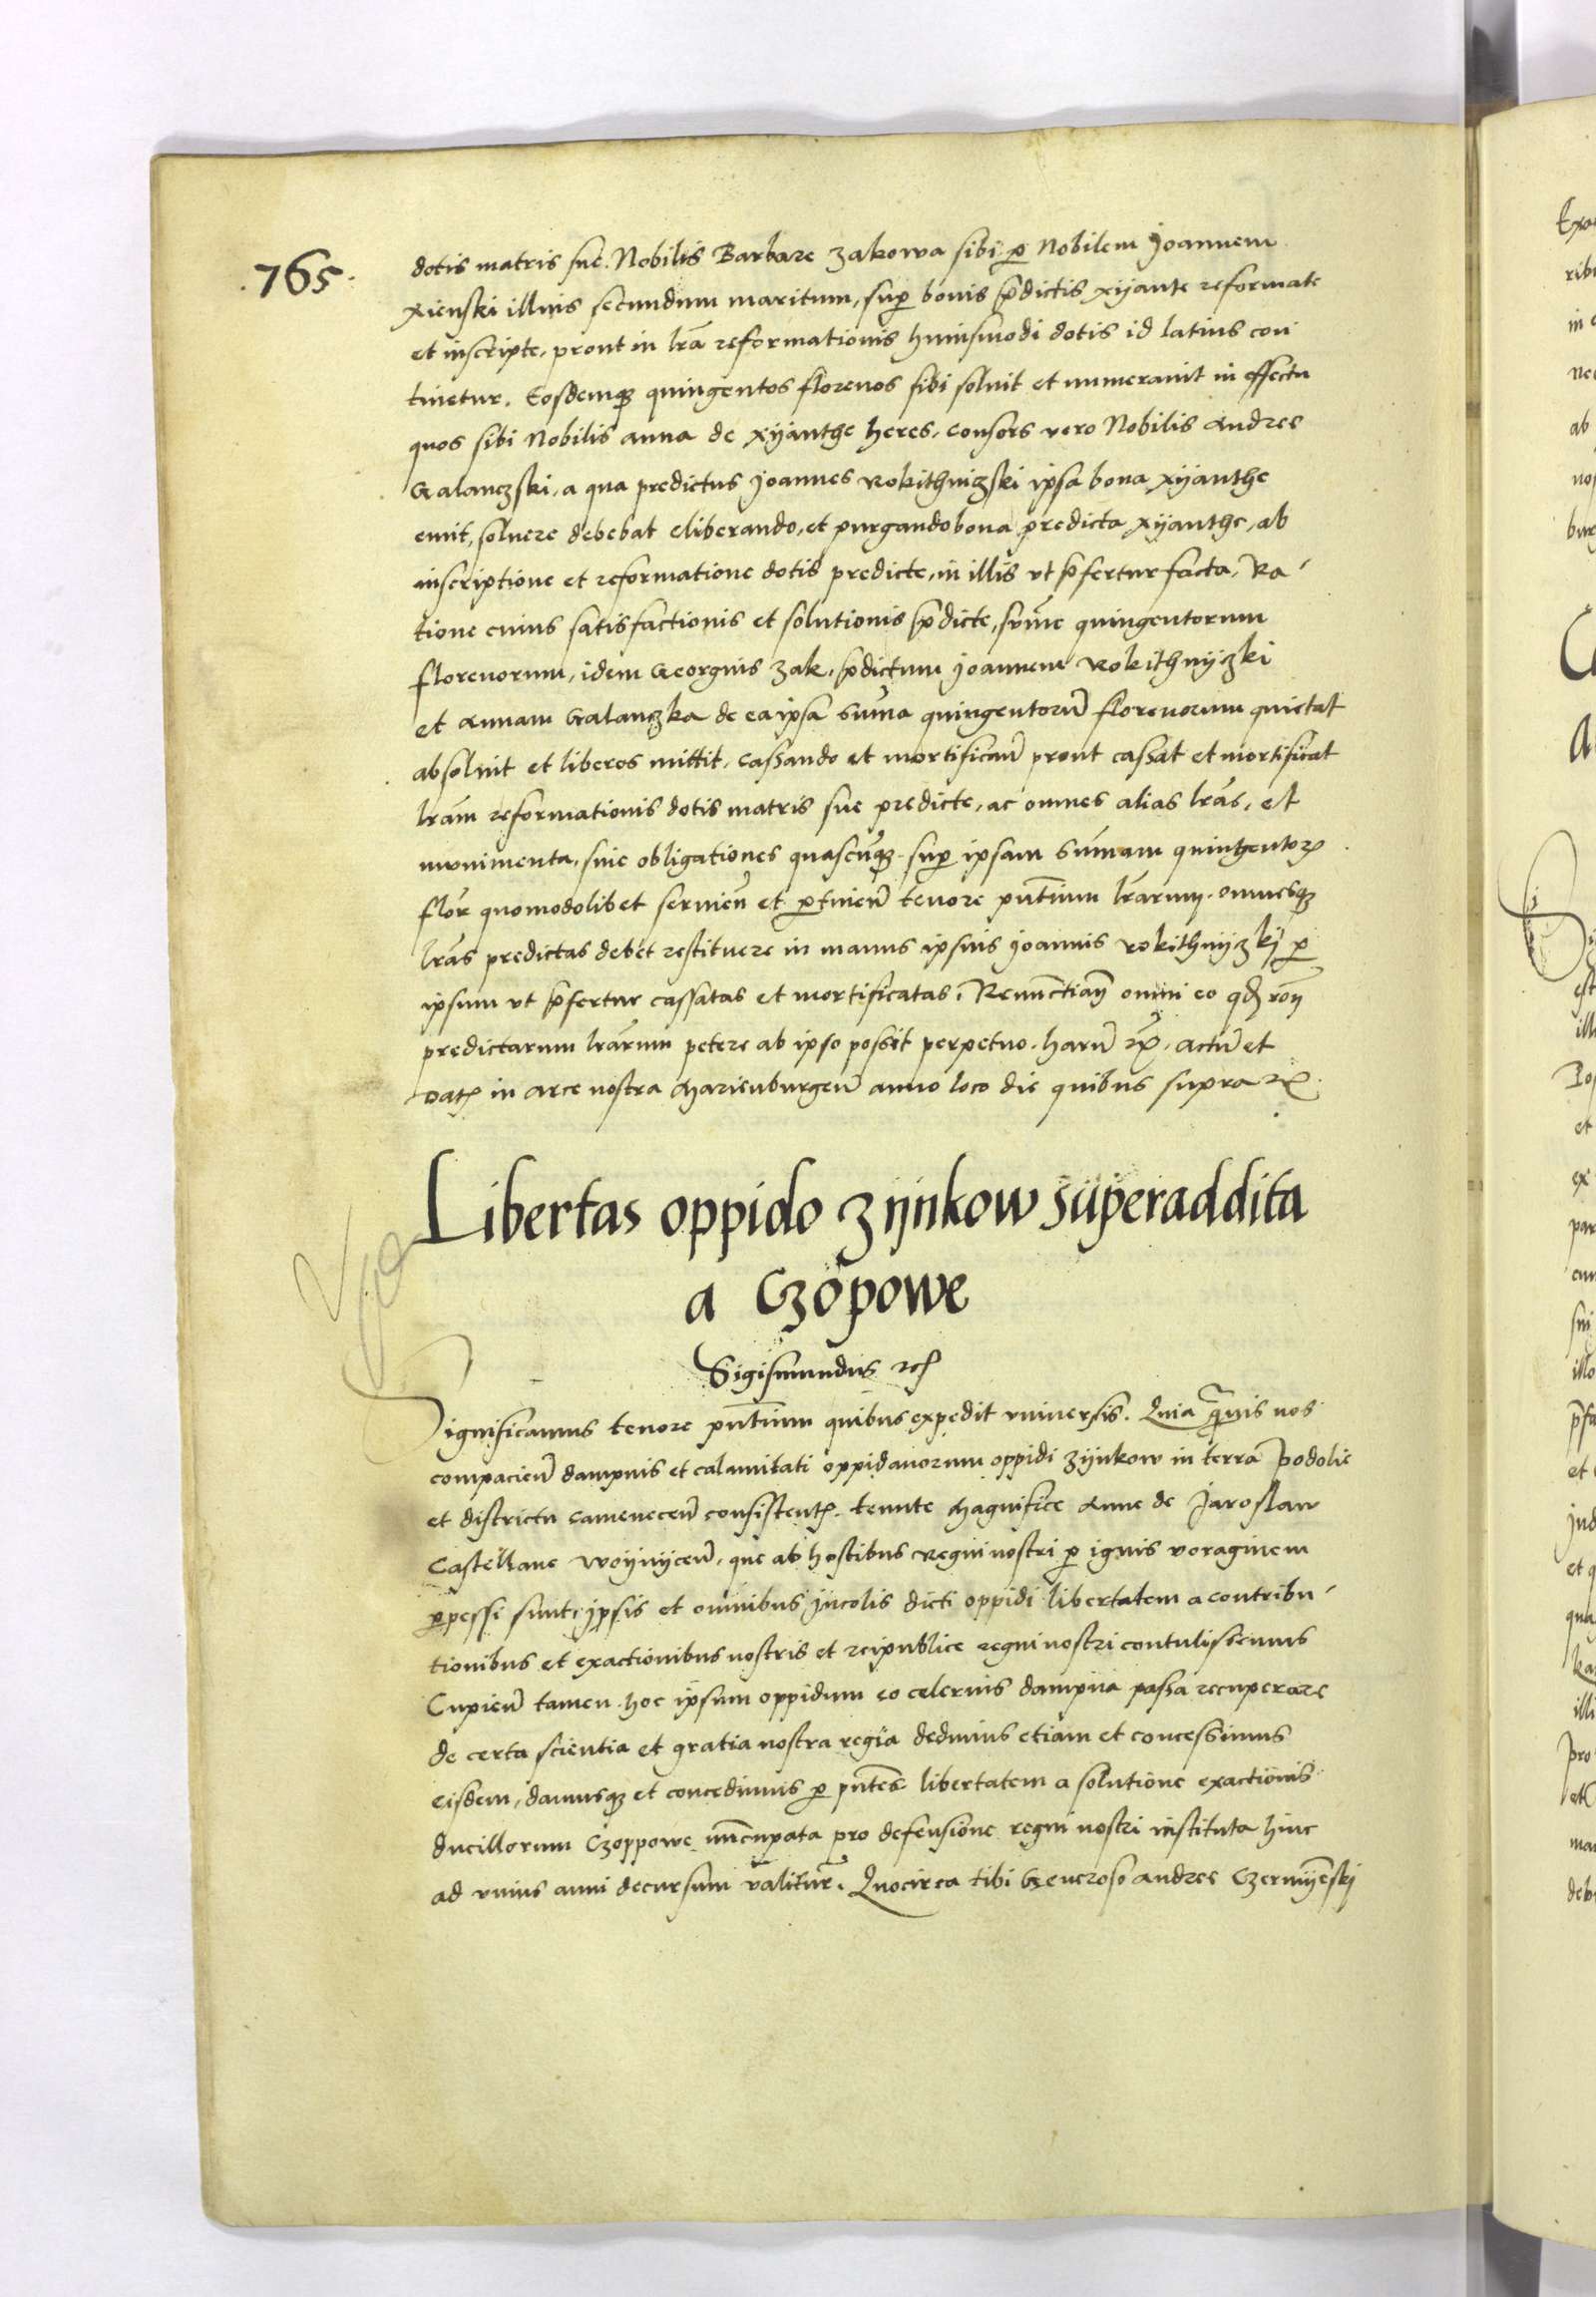 .765.
dotis matris sue. Nobilis Barbare Zakowa sibi p Nobilem Joannem
Xienski illius secundum maritum, sup bonis pdictis Xijante reformate
et inscripte, prout in lrã reformationis huiusmodi dotis id latius con
tinetur. Eosdemqʒ quingentos florenos sibi soluit et numerauit in effectu
quos sibi Nobilis anna de Xijanthe heres, consors vero Nobilis Andree
Galanczski, a qua predictus Joannes Rokithniczski ipsa bona Xijanthe
emit, soluere debebat eliberando, et purgando bona predicta Xijanthe, ab
inscriptione et reformatione dotis predicte, in illis vt pfertur facta, Ra-
tione cuius satisfactionis et solutionis pdicte, sum̃e quingentorum
florenorum, idem Georgius Zak, pdictum Joannem Rokithnijczki
et Annam Galanczka de ea ipsa Sum̃a quingentorũ florenorum quietat
absoluit et liberos mittit, cassando et mortificañ prout cassat et mortificat
lrãm reformationis dotis matris sue predicte, ac omnes alias lrãs, et
munimenta, siue obligationes quascũqʒ sup ipsam Sum̃am quingentorꝝ
flor̃ quomodolibet seruieñ et ptineñ tenore pñtium lrãrum. omnesqʒ
lrãs predictas debet restituere in manus ipsius Joannis Rokithnijczkij p
ipsum vt pfertur cassatas et mortificatas. Renunctiañ omni eo qd rõñ
predictarum lrãrum petere ab ipso possit perpetuo. harũ rꝝ. Actũ et
Datꝝ in Arce nostra Marienburgeñ anno loco die quibus supra rꝝ.
Libertas oppido Zijnkow superaddita
a Czopowe
Sigismundus rꝭ
Significamus tenore pñtium quibus expedit vniuersis. Quia quis nos
compacieñ dampnis et calamitati oppidanorum oppidi Zijnkow in terra Podolie
et districtu Cameneceñ consistentꝭ. tenute Magnifice Anne de Jaroslaw
Castellane Woijnijceñ, que ab hostibus Regni nostri p ignis voraginem
ppessi sunt, ipsis et omnibus Incolis dicti oppidi libertatem a contribu-
tionibus et exactionibus nostris et reipublice regni nostri contulissemus
Cupieñ tamen hoc ipsum oppidum eo celerius dampna passa recuperare
de certa scientia et gratia nostra regia dedimus etiam et concessimus
eisdem, damusqʒ et concedimus p pñtes libertatem a solutione exactionis
ducillorum Czoppowe nũcupata pro defensione regni nostri instituta hinc
ad vnius anni decursum valitur̃. Quocirca tibi Generoso Andree Czernijeñskj